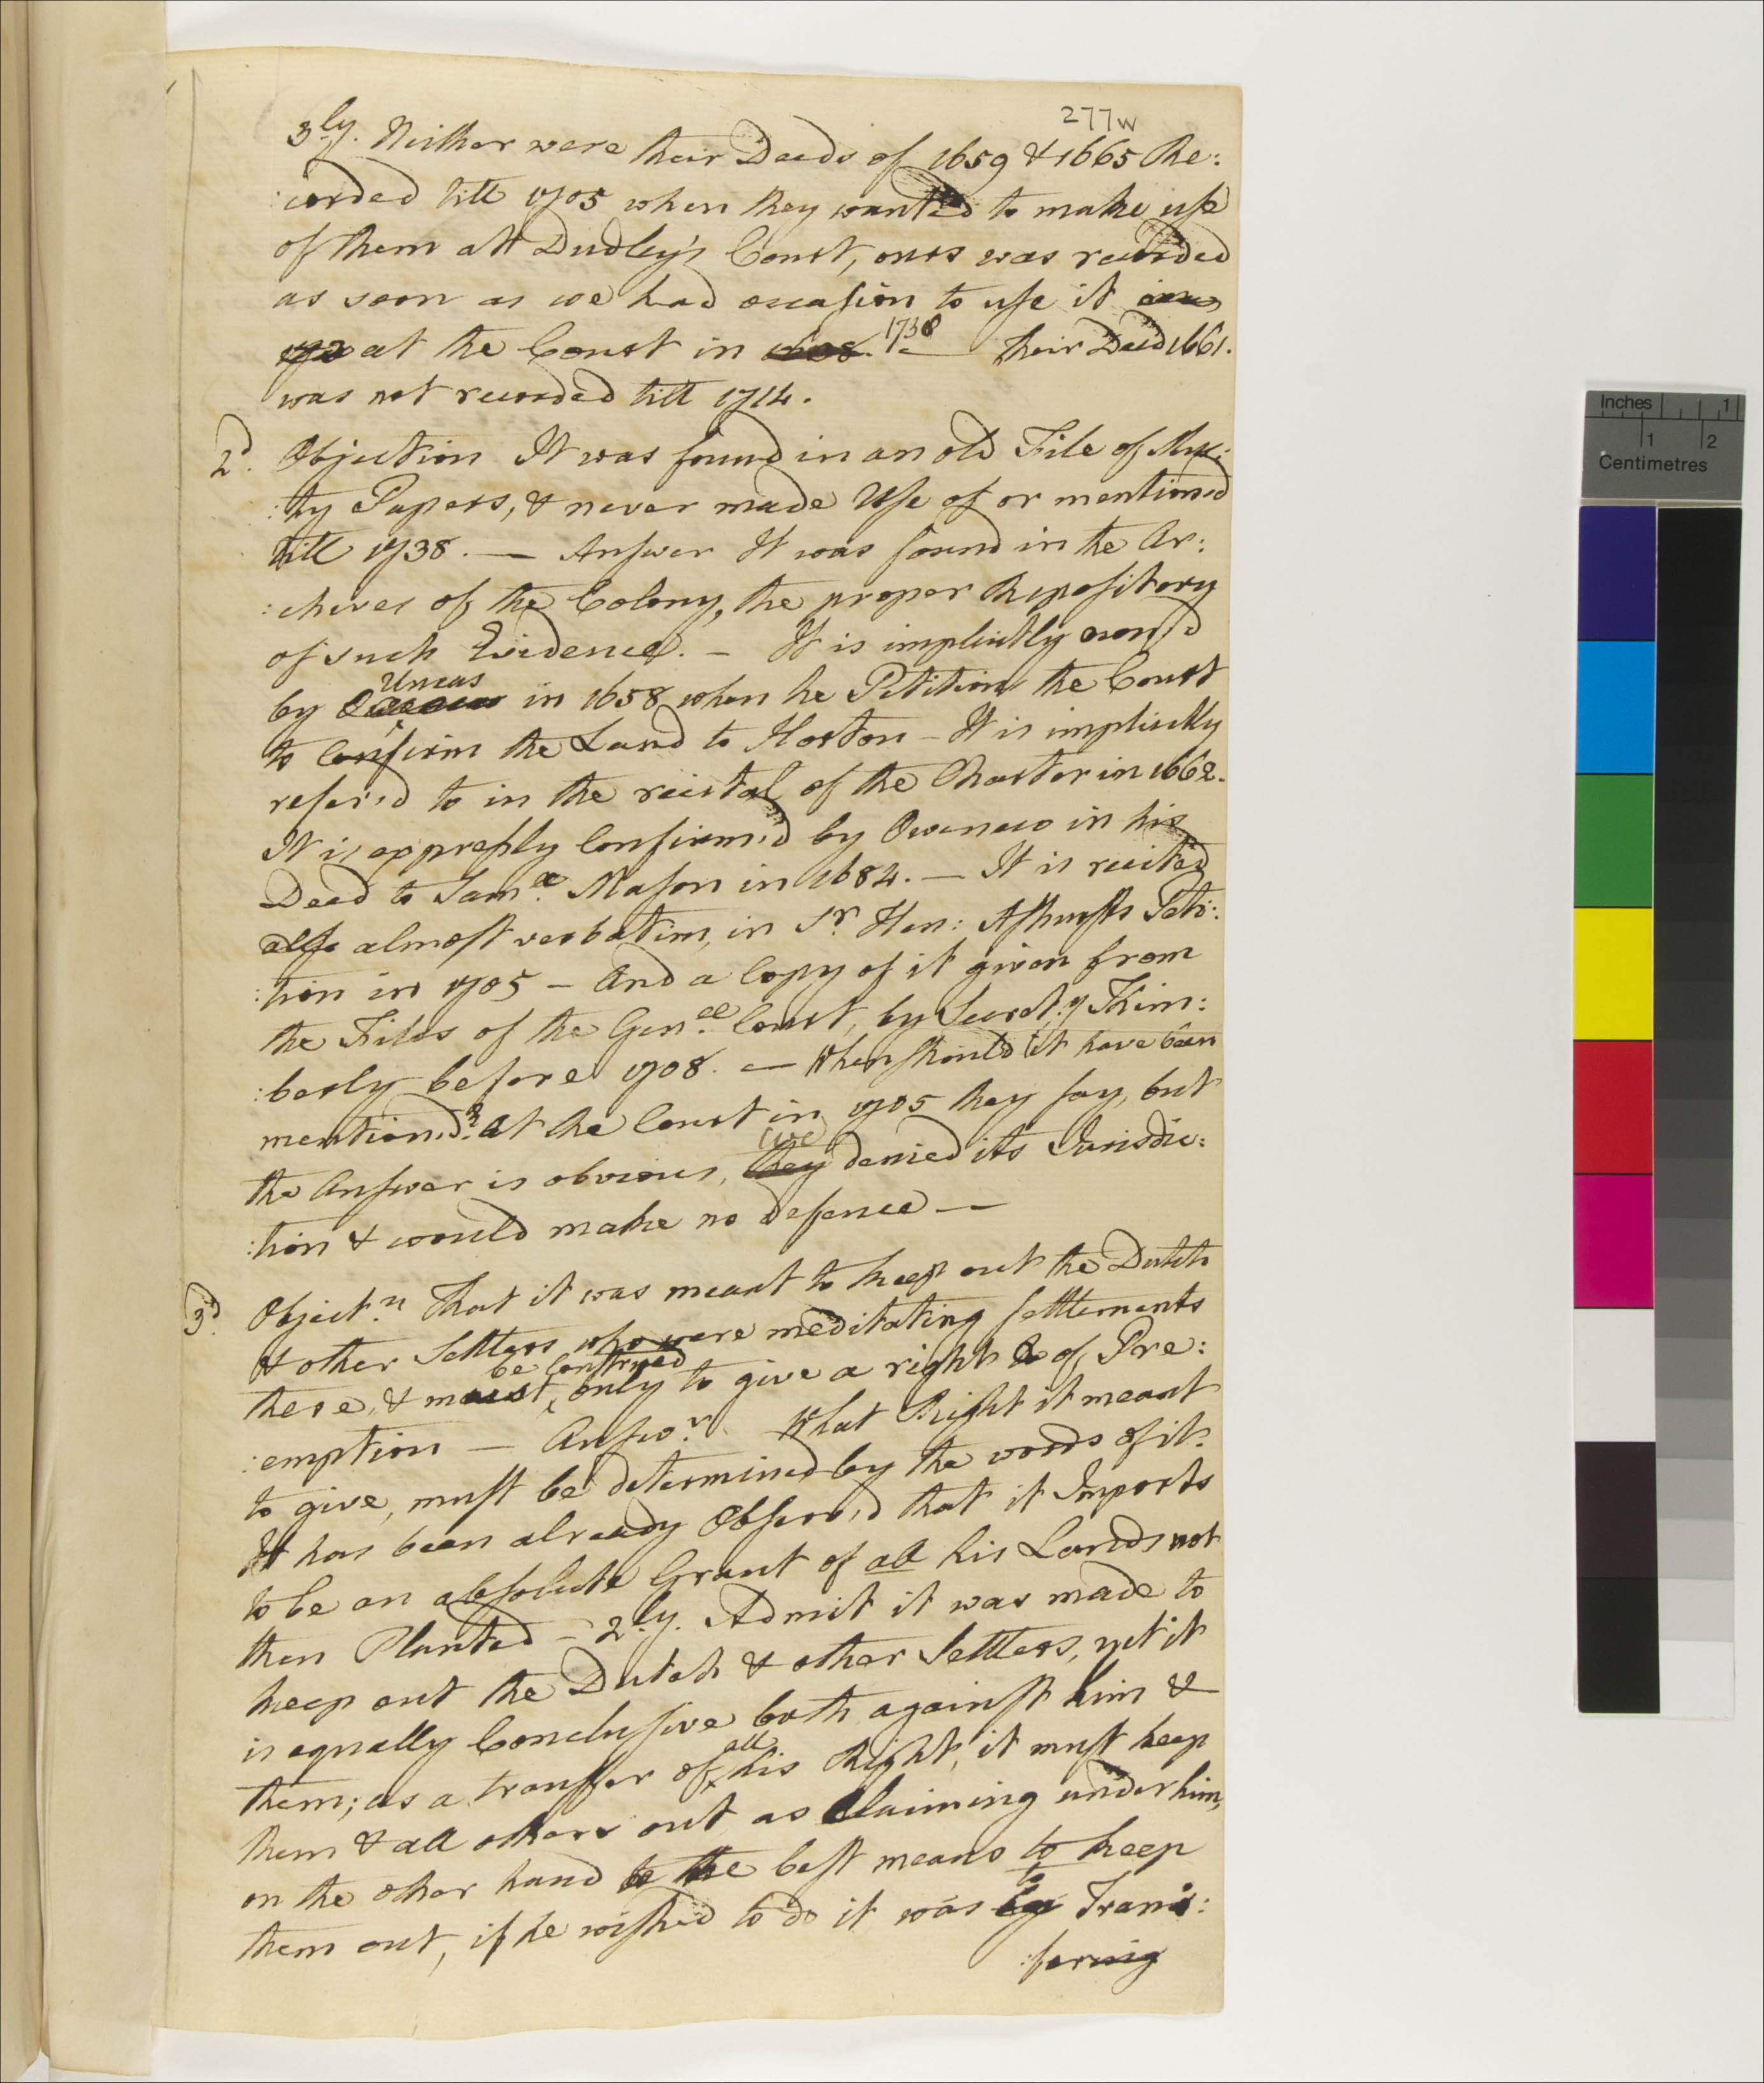 277w
3ly. Neither were their Deeds of 1659 & 1665 Re:
:corded till 1705 when they wanted to make use
of them att Dudley's Court, ours was recorded
as soon as we had occasion to use it
at the Court in 1738 — their Deed 1661.
was not recorded till 1714.
2d. Objection It was found in an old File of
:ty Papers, & never made Use of or mentiond
till 1738. — Answer It was found in the Ar:
:chives of the Colony, the proper Repository
of such Evidence. — It is implicitly own'd
by Uncas in 1658 when he Petitions the Court
to Confirm the Land to Horton - It is implicitly
refer'd to in the recital of the Charter in 1662.
It is expressly Confirm'd by Oweneco in his
Deed to Saml. Mason in 1684. — It is recited
also almost verbatim, in Sr. Hen: Ashursts Peti:
:tion in 1705 - And a Copy of it given from
the Files of the Genll. Court, by Secret.y Kim:
:berly before 1708. — When should it have been
mention'd? At the Court in 1705 they say, but
the Answer is obvious, we denied its Jurisdic:
:tion & would make no defence —
3d. Object.n That it was meant to keep out the Dutch
& other Settlers who were meditating settlements
there, & must be Construed only to give a right of Pre:
:emption — Answ.r What Right it meant
to give, must be determined by the words of it.
It has been already Observ'd that it Imports
to be an absolute Grant of all his Lands not
then Planted - 2ly. Admit it was made to
keep out the Dutch & other Settlers, yet it
is equally Conclusive both against him &
them; as a transfer of all his Right, it must keep
them & all others out as Claiming under him,
on the other hand the best means to keep
them out, if he wished to do it was to Trans:
:fering